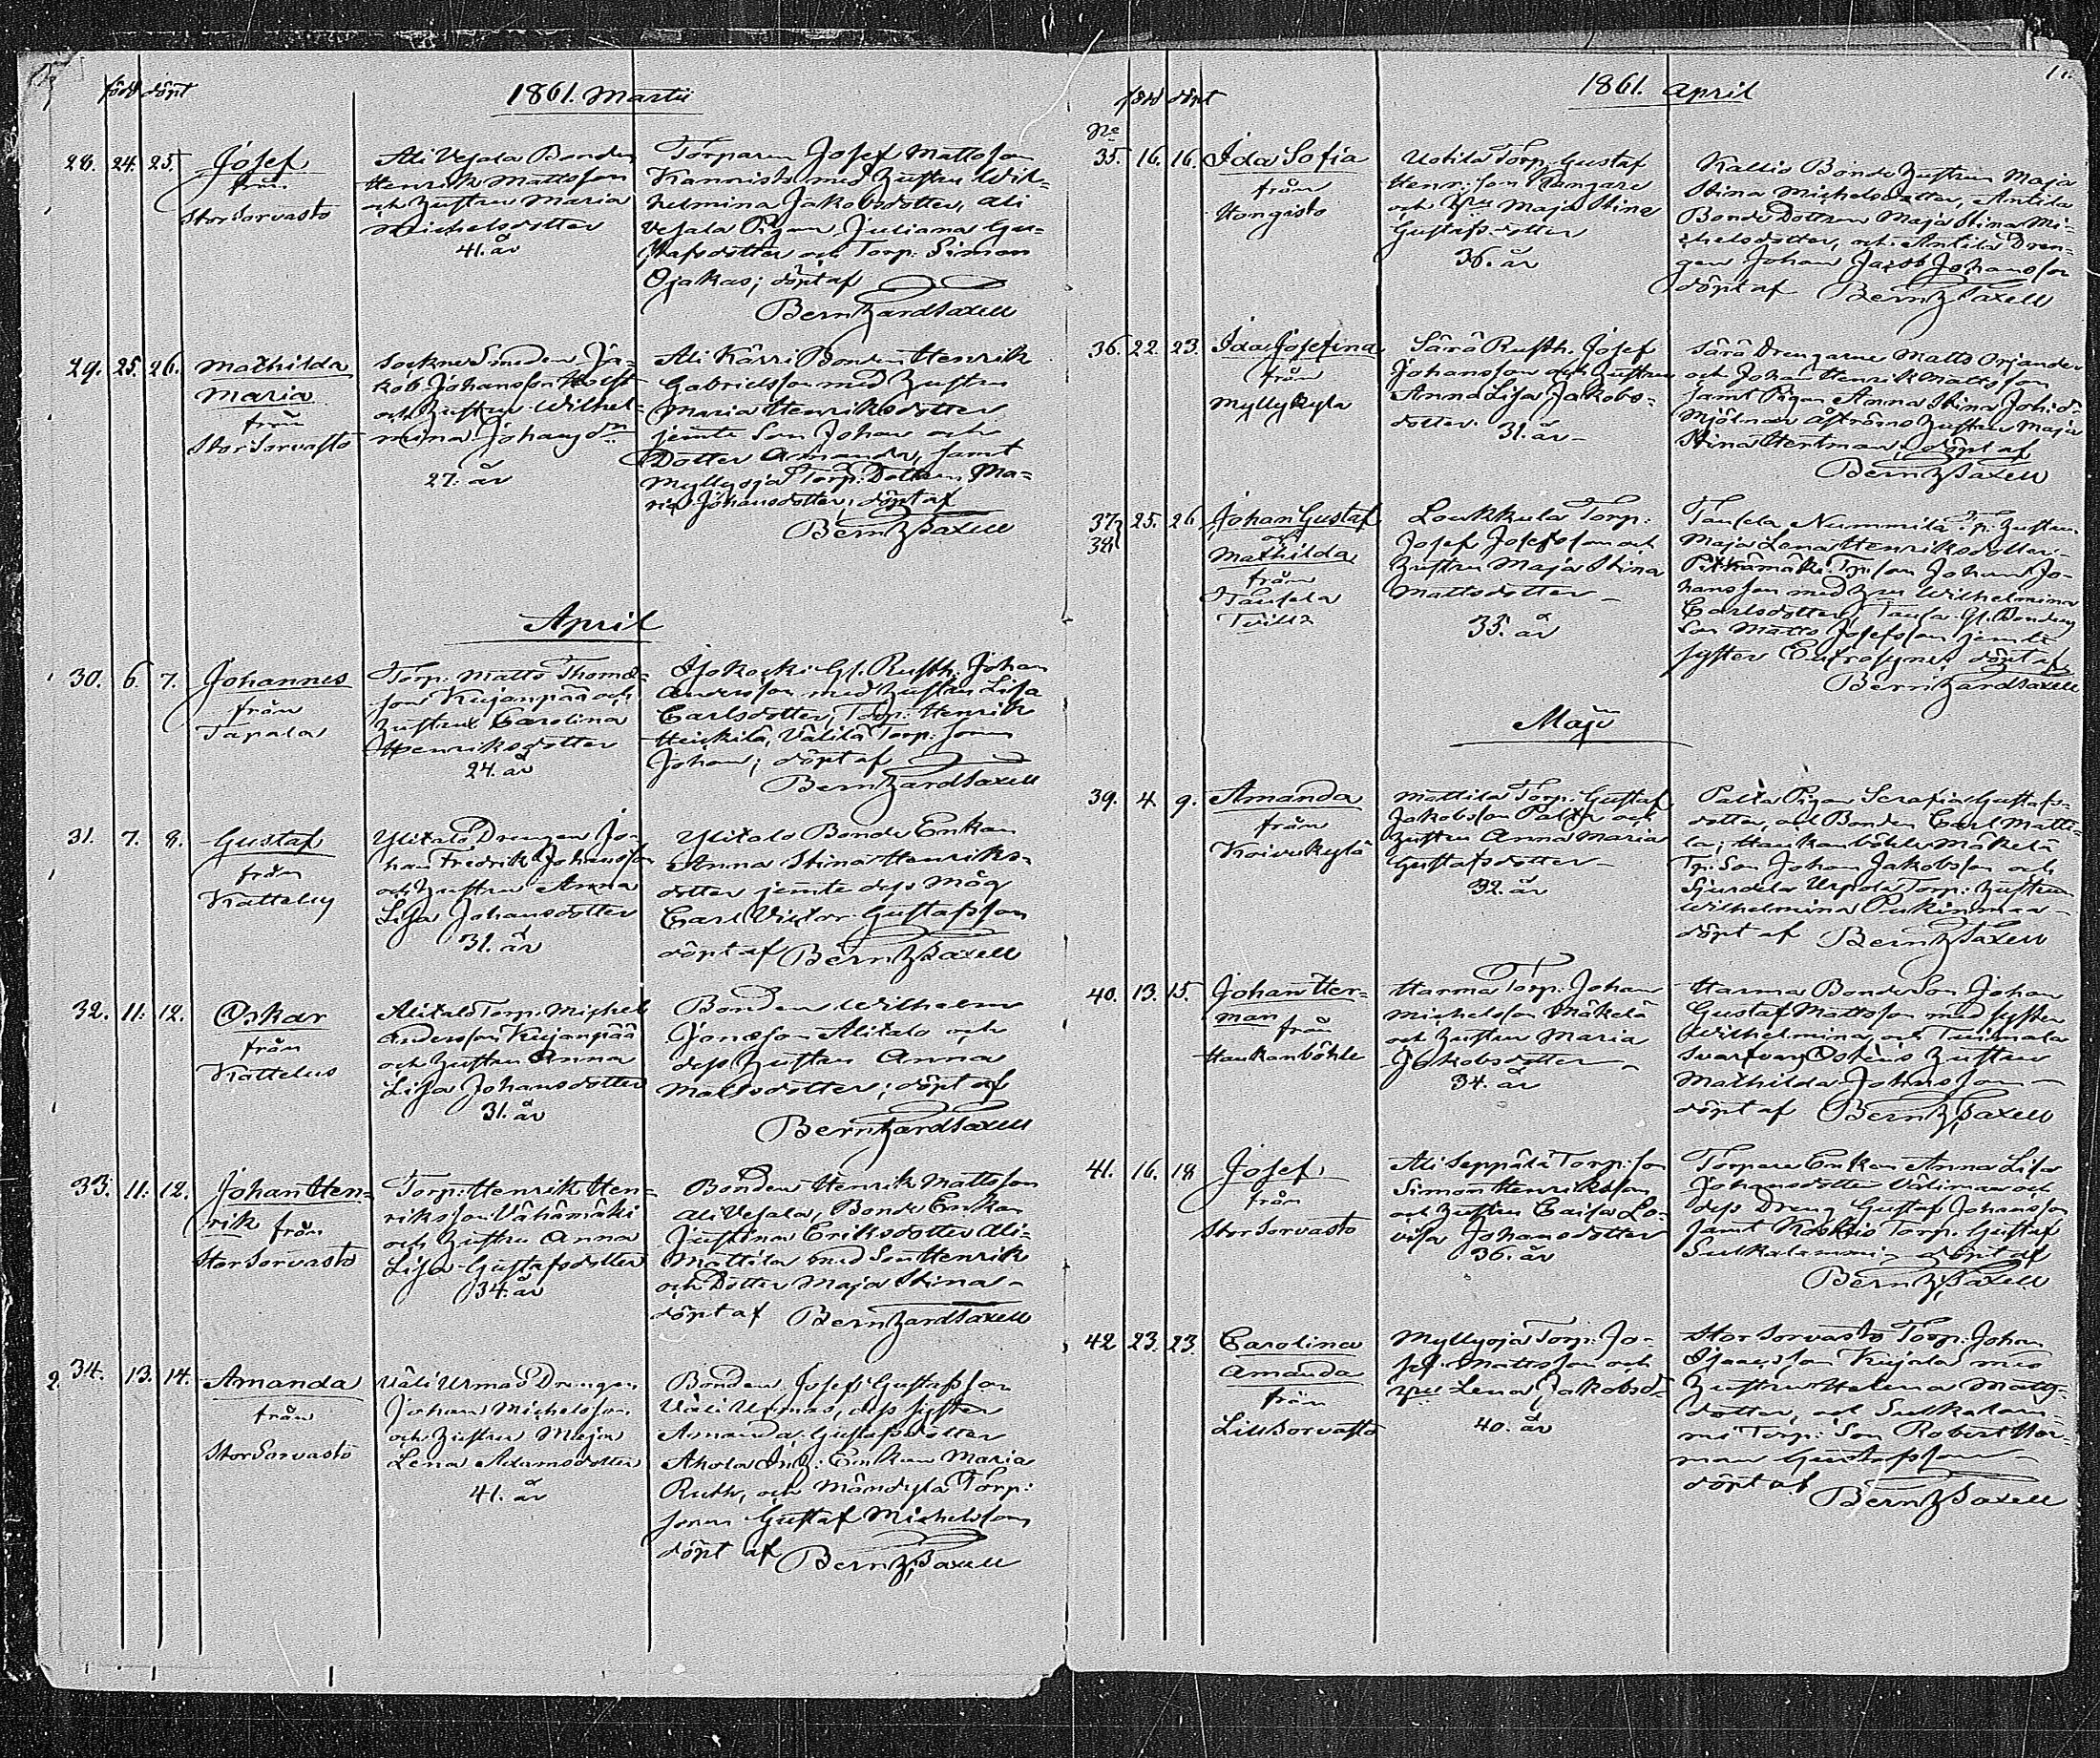 född döpt
1861. Martii
28. 24. 25. Josef
från
StorSorvasto
Ali Vesala Bonden
Henrik Mattsson
och Hustru Maria
Michelsdotter
41. år
Torparen Josef Mattsson
Kannisto med Hustru Wil-
helmina Jakobsdotter, Ali
Vesala Pigan Juliana Gu-
stafsdotter och Torp: Simon
Ojakas; döpt af
Bernhard Saxell
29. 25. 26. Mathilda
Maria
från
StorSorvasto
Sockne Smeden Ja-
kob Johansson
och Hustru Wilhel-
mina Johansdr
27. år
Ali Kärri Bonden Henrik
Gabrielsson med Hustru
Maria Henriksdotter
jemte Son Johan och
Dotter Amanda, samt
Myllyoja Torp: Dottern Ma-
ria Johansdotter; döpt af
Bernh Saxell
April
30. 6. 7. Johannes
från
Tapala
Torp: Matts Thomas-
son Kujanpää och
Hustru Carolina
Henriksdotter
24. år
Isokoski Gl. Rusth. Johan
Andersson med Hustru Lisa
Carlsdotter, Torp: Henrik
Heickilä, Välilä Torp: son
Johan; döpt af
Bernhard Saxell
31. 7. 8. Gustaf
från
Kattelus
Ylitalo Drengen Jo-
han Fredrik Johansson
och Hustru Anna
Lisa Johansdotter
31. år
Ylitalo Bonde Enkan
Anna Stina Henriks-
dotter jemte dess Måg
Carl Victor Gustafsson
döpt af Bernh Saxell
32. 11. 12. Oskar
från
Kattelus
Alitalo Torp: Michel
Andersson Kujanpää
och Hustru Anna
Lisa Johansdotter
31. år
Bonden Wilhelm
Jonasson Alitalo och
dess Hustru Anna
Mattsdotter; döpt af
Bernhard Saxell
33. 11. 12. Johan Hen-
rik från
StorSorvasto
Torp: Henrik Hen-
riksson Vähämäki
och Hustru Anna
Lisa Gustafsdotter
34. år
Bonden Henrik Mattsson
Ali Vesala, Bonde Enkan
Justina Eriksdotter Ali-
Mattila med Son Henrik
och Dotter Maja Stina
döpt af Bernhard Saxell
2. 34. 13. 14. Amanda
från
StorSorvasto
Väli Urmas Drengen
Johan Michelsson
och Hustru Maja
Lena Adamsdotter
41. år
Bonden Josef Gustafsson
Väli Urmas, dess syster
Amanda Gustafsdotter
Ahola Enkan Maria
Ruth, och Mändylä Torp:
sonen Gustaf Michelsson
döpt af Bernh Saxell
född döpt
1861. April
No
35. 16. 16. Ida Sofia
från
Hongisto
Uotila Torp: Gustaf
Henr:son Kangare
och Hru Maja Stina
Gustafsdotter
36. år
Kallio Bonde Hustrun Maja
Stina Michelsdotter, Antila
Bonde Dottren Maja Stina Mi-
chelsdotter, och Antila Dren-
gen Johan Jacob Johansson
döpt af Bernh Saxell
36. 22. 23. Ida Josefina
från
Myllykylä
Särä Rusth. Josef
Johansson och Hustru
Anna Lisa Jakobs-
dotter. 31. år
Särä Drengarne Matts Orjander
och Johan Henrik Mattsson
samt Pigan Anna Stina Joh:dr
Mjölnar Åströms Hustru Maja
Stina Hentman; döpt af
Bernh Saxell
37. 25. 26 Johan Gustaf
38. och
Mathilda
från
Tausela
Tvill:
Loukkula Torp:
Josef Josefsson och
Hustru Maja Stina
Mattsdotter
33. år
Tausela Nummila Tp: Hustrun
Maja Lena Henriksdotter
Pitkämäki Tp: son Johan Jo-
hansson med Hru Wilhelmina
Carlsdotter, Tausela Gl. Bondens
Son Matts Josefsson jemte
syster Eufrosyne; döpt af
Bernhard Saxell
Maji
39. 4 9. Amanda
från
Koivukylä
Mattila Torp: Gustaf
Jakobsson Palta och
Hustru Anna Maria
Gustafsdotter
32. år
Palta Pigan Serafia Gustafs-
dotter, och Bonden Carl Matti-
la; Haukanböhle Mäkelä
Tp: Son Johan Jakobsson och
Sjundela Uspola Torp: Hustrun
Wilhelmina
döpt af Bernh Saxell
40. 13. 15. Johan Her-
man från
Haukanböhle
Harma Torp: Johan
Michelsson Mäkelä
och Hustru Maria
Jakobsdotter
34. år
Harma Bonde Son Johan
Gustaf Mattsson med syster
Wilhelmina och Tuimala
Svarfvar Hustru
Mathilda Johansson
döpt af Bernh Saxell
41. 16. 18 Josef
från
StorSorvasto
Ali Seppälä Torp: son
Simon Henriksson
och Hustru Caisa Lo-
visa Johansdotter
36. år
Torpare Enkan Anna Lisa
Johansdotter Välimaa och
dess Dreng Gustaf Johansson
samt Torp: Gustaf
Sulkalammi; döpt af
Bernh Saxell
42 23. 23. Carolina
Amanda
från
LillSorvasto
Myllyoja Torp: Jo-
sef Mattsson och
Hru Lena Jakobsdr
40. år
StorSorvasto Torp: Johan
Isaacsson Kujala med
Hustru Helena Matts-
dotter, och Sulkalam-
mi Torp: Son Robert Her-
man Gustafsson
döpt af Bernh Saxell